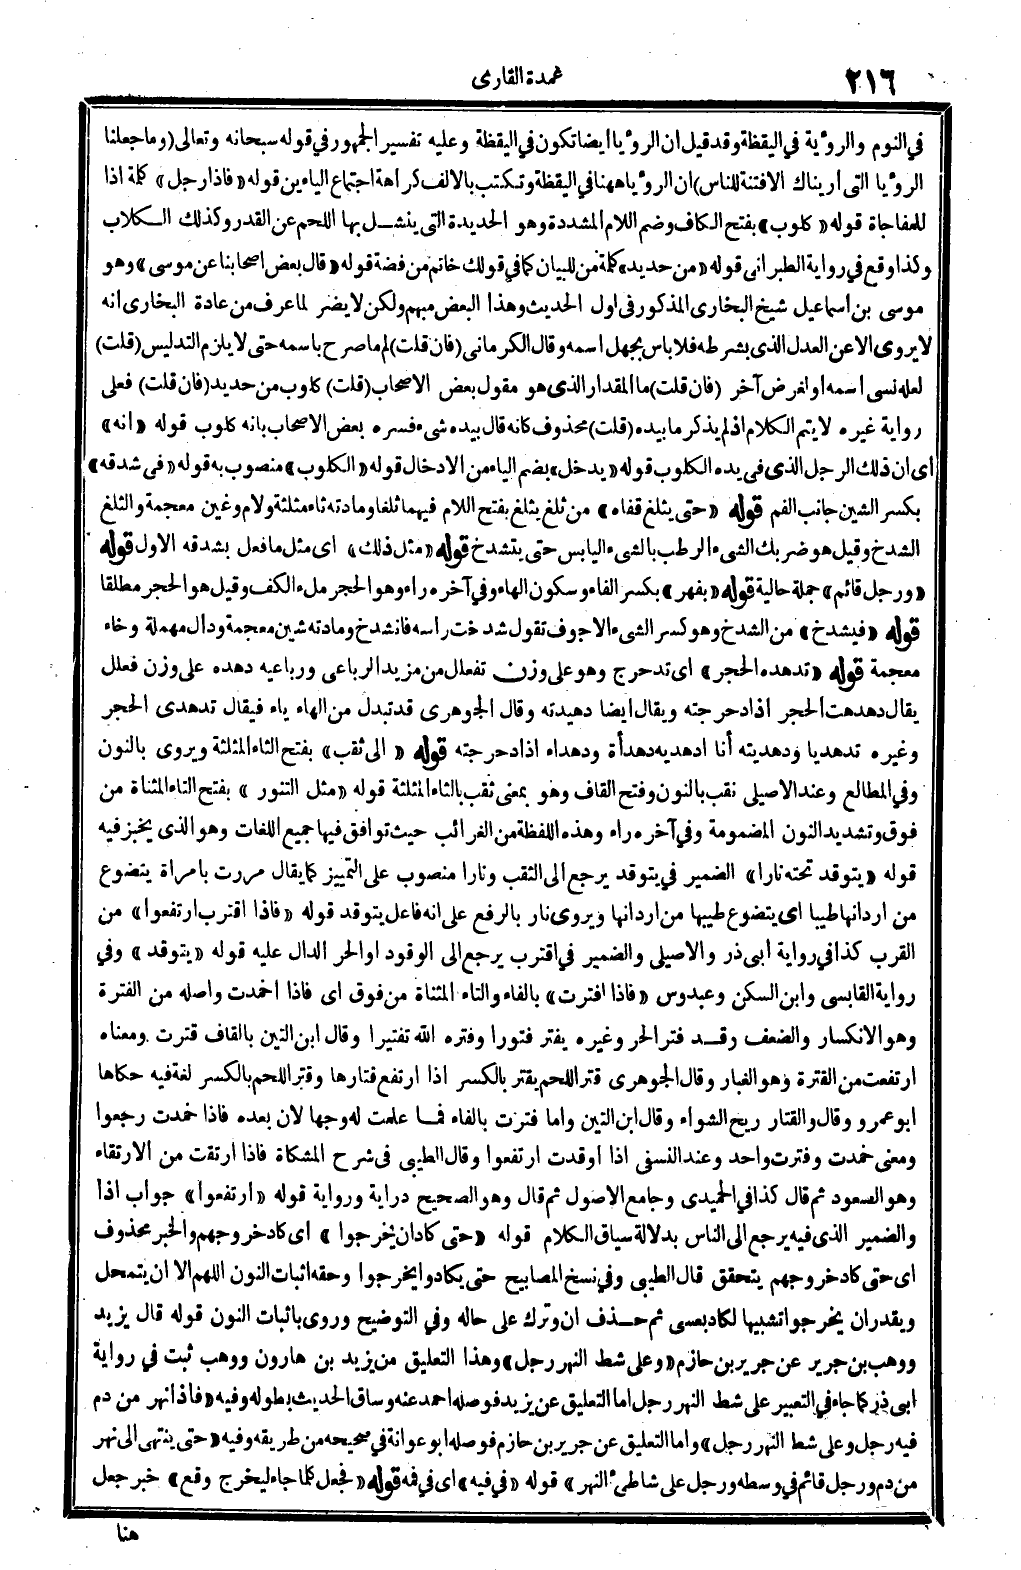 ٢١٦
عمدة القارى
في النوم والرؤية في اليقظة وقد قيل ان الرؤيا أيضا تكون في اليقظة وعليه تفسير الجمهور في قوله سبحانه وتعالى (وما جعلنا
الرؤيا التى أريناك الا فتنة للناس) ان الرؤيا ههنا في اليقظة وتكتب بالالف كراهة اجتماع الياءين قوله «فاذا رجل» كلمة اذا
للمفاجاة قوله «كلوب» بفتح الكاف وضم اللام المشددة وهو الحديدة التى ينشل بها اللحم عن القدر وكذلك الكلاب
وكذا وقع في رواية الطبرانى قوله «من حديد» كلمة من للبيان كما في قولك خاتم من فضة قوله «قال بعض اصحابنا عن موسى» وهو
موسى بن اسماعيل شيخ البخارى المذكور فى اول الحديث وهذا البعض مبهم ولكن لا يضر لما عرف من عادة البخارى انه
لا يروى الا عن العدل الذى بشرطه فلا باس بجهل اسمه وقال الكرمانى (فان قلت) لم ما صرح باسمه حتى لا يلزم التدليس (قلت)
لعله نسى اسمه او لغرض آخر (فان قلت) ما المقدار الذى هو مقول بعض الاصحاب (قلت) كلوب من حديد (فان قلت) فعلى
رواية غيره لا يتم الكلام اذ لم يذكر ما بيده (قلت) محذوف كانه قال بيده شىء فسره بعض الاصحاب بانه كلوب قوله «انه»
أى ان ذلك الرجل الذى فى يده الكلوب قوله «يدخل» بضم الياء من الادخال قوله «الكلوب» منصوب به قوله «فى شدقه»
بكسر الشين جانب الفم قوله «حتى يثلغ قفاه» من ثلغ يثلغ بفتح اللام فيهما ثلغا ومادته ثاء مثلثة ولام وغين معجمة والثلغ
الشدخ وقيل هو ضربك الشىء الرطب بالشىء اليابس حتى يتشدخ قوله «مثل ذلك» اى مثل ما فعل بشدقه الاول قوله
«ورجل قائم» جملة حالية قوله «بفهر» بكسر الفاء وسكون الهاء وفي آخره راء وهو الحجر ملء الكف وقيل هو الحجر مطلقا
قوله «فيشدخ» من الشدخ وهو كسر الشىء الاجوف تقول شدخت راسه فانشدخ ومادته شين معجمة ودال مهملة وخاء
معجمة قوله «تدهده الحجر» اى تدحرج وهو على وزن تفعلل من مزيد الرباعى ورباعيه دهده على وزن فعلل
يقال دهدهت الحجر اذا دحرجته ويقال ايضا دهديته وقال الجوهرى قد تبدل من الهاء ياء فيقال تدهدى الحجر
وغيره تدهديا ودهديته أنا ادهديه دهدأة ودهداء اذا دحرجته قوله « الى ثقب» بفتح الثاء المثلثة ويروى بالنون
وفي المطالع وعند الاصيلى نقب بالنون وفتح القاف وهو بمعنى ثقب بالثاء المثلثة قوله «مثل التنور » بفتح التاء المثناة من
فوق وتشديد النون المضمومة وفي آخره راء وهذه اللفظة من الغرائب حيث توافق فيها جميع اللغات وهو الذى يخبز فيه
قوله «يتوقد تحته نارا» الضمير في يتوقد يرجع الى الثقب ونارا منصوب على التمييز كما يقال مررت بامراة يتضوع
من اردانها طيبا اى يتضوع طيبها من اردانها ويروى نار بالرفع على انه فاعل يتوقد قوله «فاذا اقترب ارتفعوا» من
القرب كذا في رواية أبى ذر والاصيلى والضمير في اقترب يرجع الى الوقود او الحر الدال عليه قوله «يتوقد» وفي
رواية القابسى وابن السكن وعبدوس «فاذا افترت» بالفاء والتاء المثناة من فوق اى فاذا اخمدت واصله من الفترة
وهو الانكسار والضعف وقد فتر الحر وغيره يفتر فتورا وفتره الله تفتيرا وقال ابن التين بالقاف قترت ومعناه
ارتفعت من القترة وهو الغبار وقال الجوهرى قتر اللحم يقتر بالكسر اذا ارتفع قتارها وقتر اللحم بالكسر لغة فيه حكاها
ابو عمرو وقال والقتار ريح الشواء وقال ابن التين واما فترت بالفاء فما علمت له وجها لان بعده فاذا خمدت رجعوا
ومعنى خمدت وفترت واحد وعند النسفى اذا اوقدت ارتفعوا وقال الطيبى فى شرح المشكاة فاذا ارتقت من الارتقاء
وهو الصعود ثم قال كذا في الحميدى وجامع الاصول ثم قال وهو الصحيح دراية ورواية قوله «ارتفعوا» جواب اذا
والضمير الذى فيه يرجع الى الناس بدلالة سياق الكلام قوله «حتى كاد ان يخرجوا » اى كاد خروجهم والخبر محذوف
اى حتى كاد خروجهم يتحقق قال الطيبى وفي نسخ المصابيح حتى يكادوا يخرجوا وحقه اثبات النون اللهم الا ان يتمحل
ويقدر ان يخرجوا تشبيها لكاد بعسى ثم حذف ان وترك على حاله وفي التوضيح وروى باثبات النون قوله قال يزيد
ووهب بن جرير عن جرير بن حازم «وعلى شط النهر رجل» وهذا التعليق من يزيد بن هارون ووهب ثبت في رواية
ابى ذر كما جاء في التعبير على شط النهر رجل اما التعليق عن يزيد فوصله احمد عنه وساق الحديث بطوله وفيه «فاذا نهر من دم
فيه رجل وعلى شط النهر رجل» واما التعليق عن جرير بن حازم فوصله ابو عوانة في صحيحه من طريقه وفيه «حتى ينتهى الى نهر
من دم ورجل قائم في وسطه ورجل على شاطئ النهر» قوله «في فيه» اى في فمه قوله «فجعل كلما جاء ليخرج وقع» خبر جعل
هنا